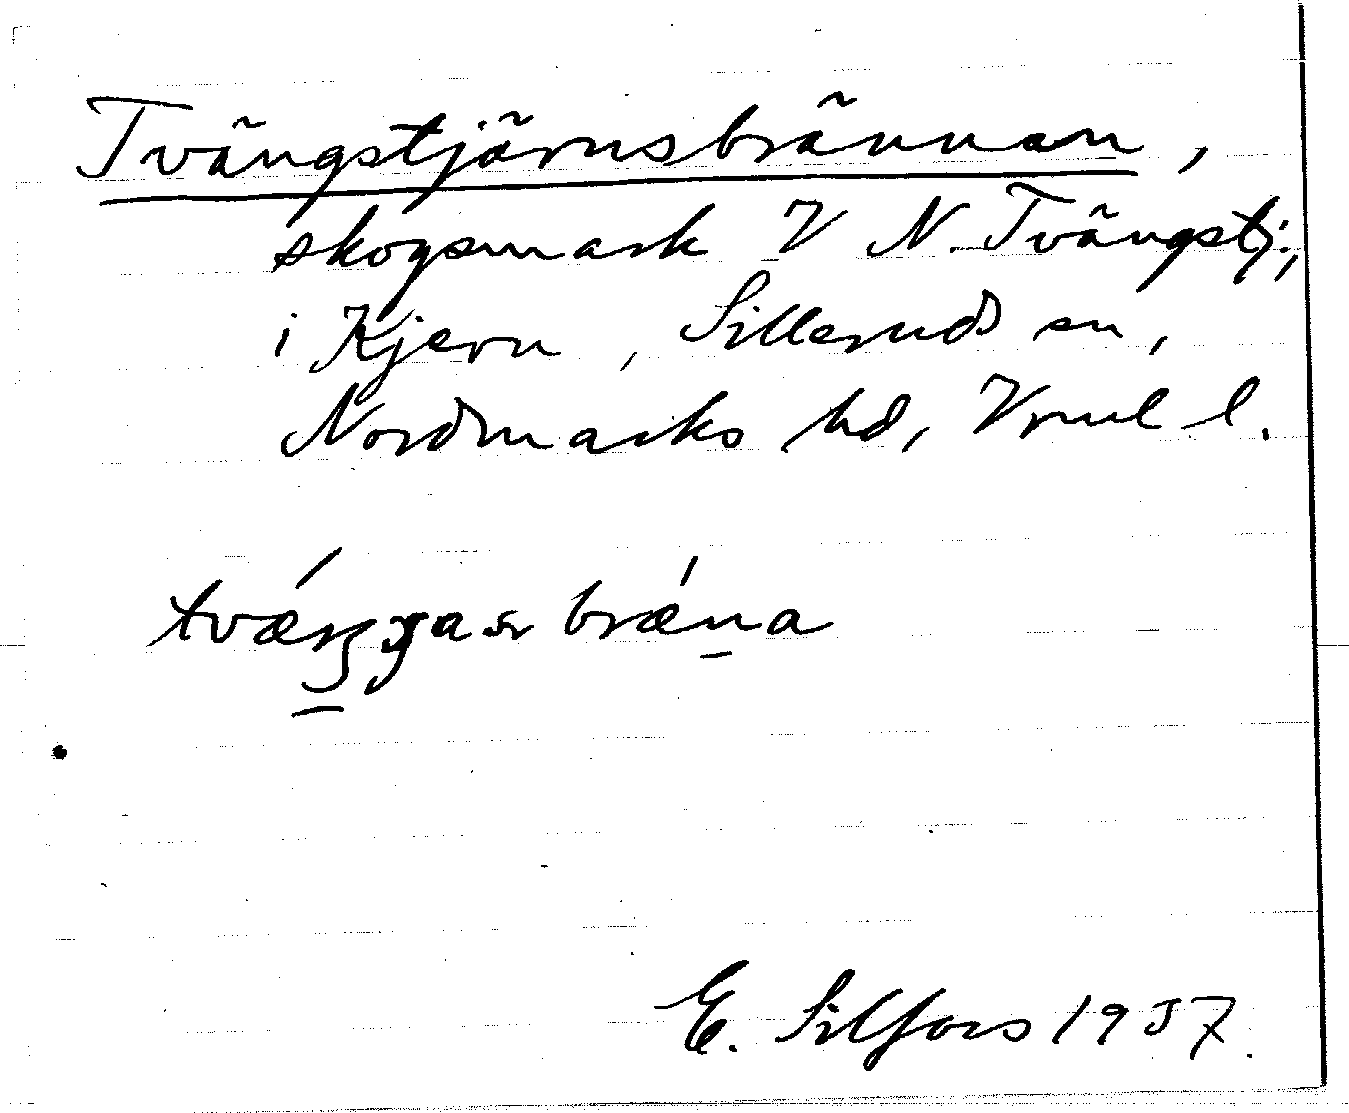 Tvängstjärnsbrännan,
skogsmark V N. Tvängstj.,
i Kjern, Sillerud sn,
Nordmarks hd, Vrml l.
E. Silfors 1937.